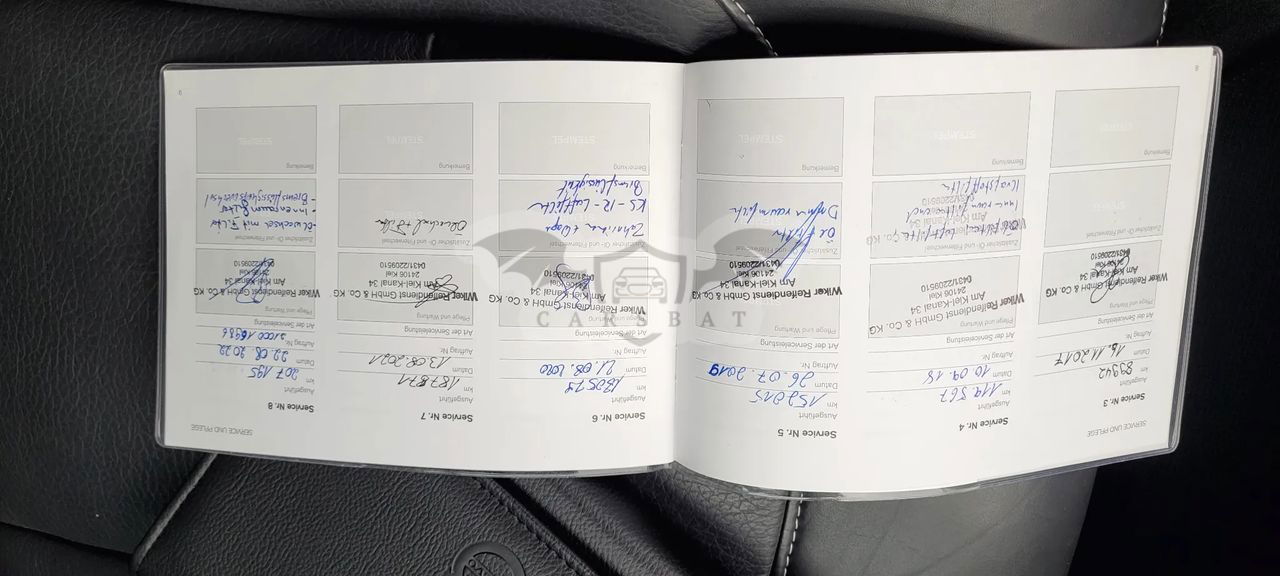 SERVICE UND PFLEGE
Service Nr. 3
Ausgeführt
km 89942
Datum 15.11.2017
Auftrag Nr.
Art der Serviceleistung
Pflege und Wartung
Wilker Reifendienst GmbH & Co. KG
Am Kiel-Kanal 34
24106 Kiel
0431/2209510
Zusätzlicher Öl- und Filterwechsel
Bemerkung
Service Nr. 4
Ausgeführt
km 119 567
Datum 10.09.18
Auftrag Nr.
Art der Serviceleistung
Pflege und Wartung
Wilker Reifendienst GmbH & Co. KG
Am Kiel-Kanal 34
24106 Kiel
0431/2209510
Zusätzlicher Öl- und Filterwechsel
Ölfilter, Luftfilter
Kraftstofffilter
Bemerkung
STEMPEL
Service Nr. 5
Ausgeführt
km 152015
Datum 26.07.2019
Auftrag Nr.
Art der Serviceleistung
Pflege und Wartung
Wilker Reifendienst GmbH & Co. KG
Am Kiel-Kanal 34
24106 Kiel
0431/2209510
Zusätzlicher Öl- und Filterwechsel
Ölfilter
Bemerkung
STEMPEL
8
Service Nr. 6
Ausgeführt
km 180579
Datum 21.08.2020
Auftrag Nr.
Art der Serviceleistung
Pflege und Wartung
Wilker Reifendienst GmbH & Co. KG
Am Kiel-Kanal 34
24106 Kiel
0431/2209510
Zusätzlicher Öl- und Filterwechsel
Zahnriemen + Wapu
Bremsflüssigkeit
Bemerkung
STEMPEL
Service Nr. 7
Ausgeführt
km 187871
Datum 13.08.2021
Auftrag Nr.
Art der Serviceleistung
Pflege und Wartung
Wilker Reifendienst GmbH & Co. KG
Am Kiel-Kanal 34
24106 Kiel
0431/2209510
Zusätzlicher Öl- und Filterwechsel
Bemerkung
STEMPEL
SERVICE UND PFLEGE
Service Nr. 8
Ausgeführt
km 207 195
Datum 22.08.2022
Auftrag Nr.
Art der Serviceleistung
Pflege und Wartung
Wilker Reifendienst GmbH & Co. KG
Am Kiel-Kanal 34
24106 Kiel
0431/2209510
Zusätzlicher Öl- und Filterwechsel
- Ölwechsel mit Filter
- Innenraumfilter
- Bremsflüssigkeitswechsel
Bemerkung
STEMPEL
9
CARSBAT